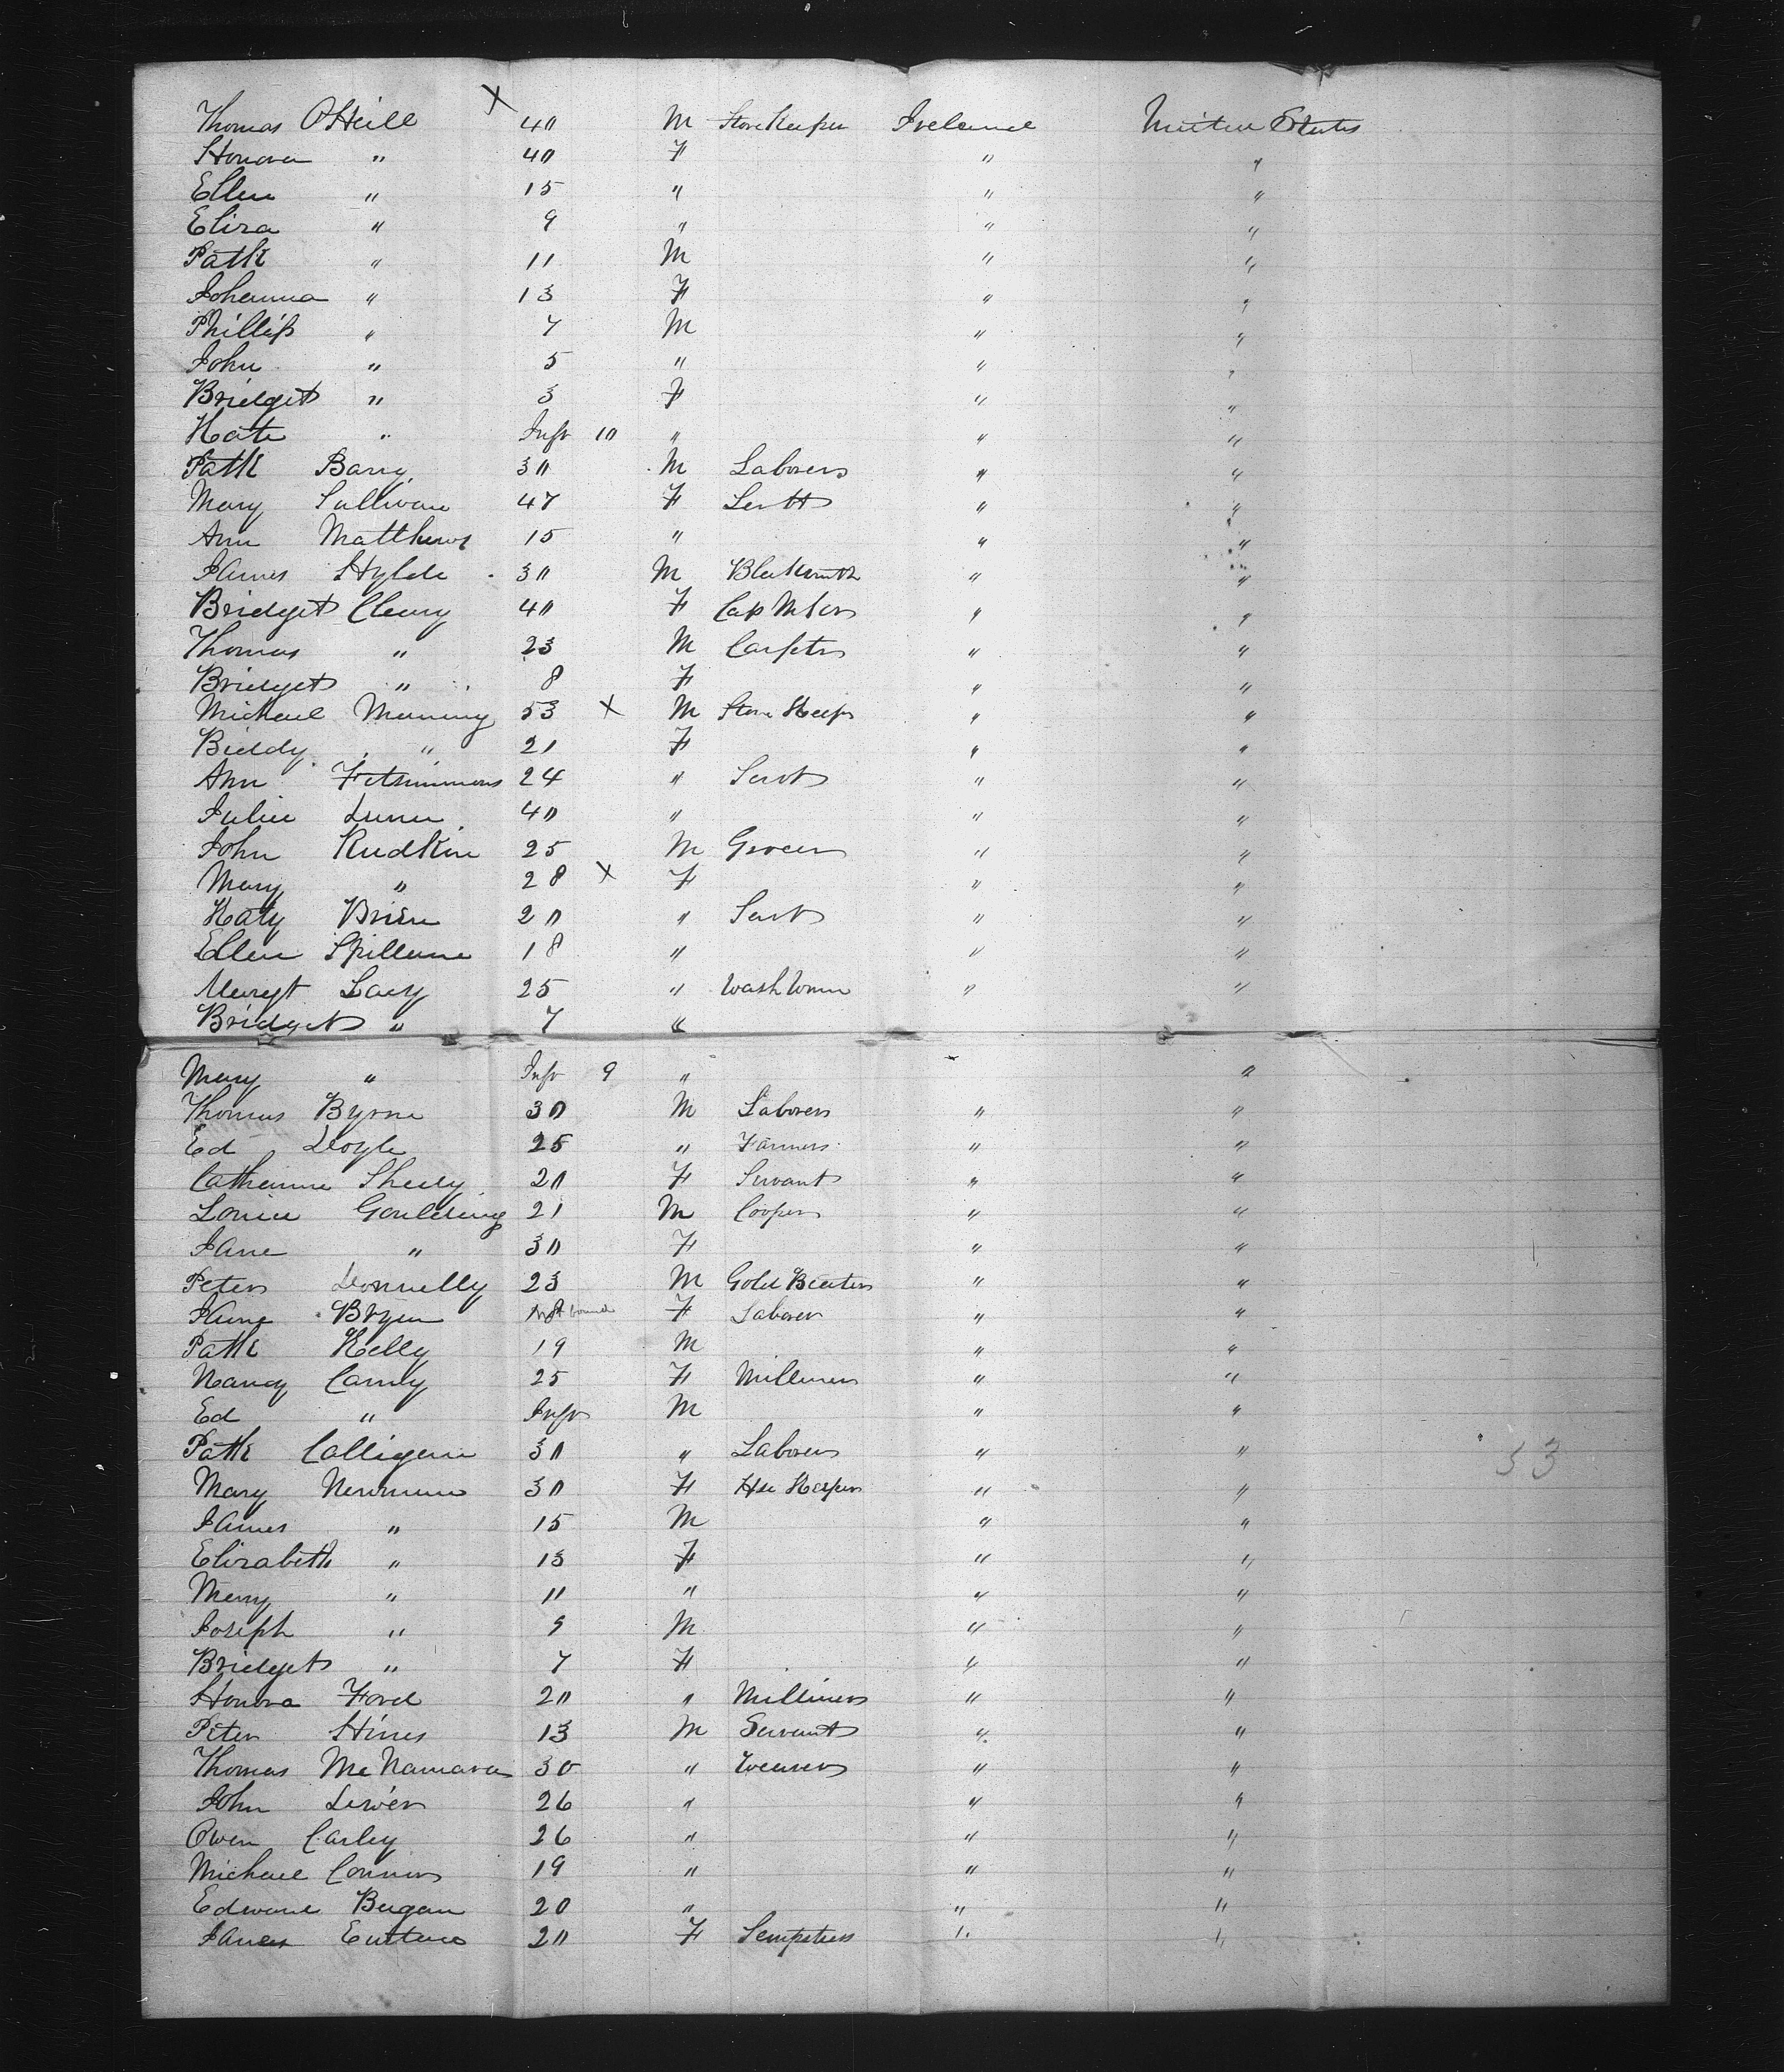 Thomas O'Neill X 40 M Store Keeper Ireland United States
Honora " 40 F " "
Ellen " 15 " " "
Eliza " 9 " " "
Patk " 11 M " "
Johanna " 13 F " "
Phillip " 7 M " "
John " 5 " " "
Bridget " 3 F " "
Kate " Inft 10 " " "
Patk Barry 30 M Laborer " "
Mary Sullivan 47 F Servt " "
Ann Matthews 15 " " "
James Hylde 30 M Blcksmith " "
Bridget Cleary 40 F Cap Mkr " "
Thomas " 23 M Carptr " "
Bridget " 8 F " "
Michael Manning 53 X M Store Keepr " "
Biddy " 21 F " "
Ann Fitsimmons 24 " Servt " "
Julia Dunn 40 " " "
John Rudkin 25 M Grocer " "
Mary " 28 X F " "
Katy Brien 20 " Servt " "
Ellen Spillane 18 " " "
Margt Lacy 25 " Wash Woman " "
Bridget " 7 "
Mary " Inft 9 " "
Thomas Byrne 30 M Laborer " "
Ed Doyle 25 " Farmer " "
Catherine Sheely 20 F Servant " "
Goulding 21 M Cooper " "
Jane " 30 F " "
Peter Donnelly 23 M Gold Beater " "
Jane F Laborer " "
Patk Kelly 19 M " "
Nancy Carnly 25 F Milliner " "
Ed " Inft M " "
Patk Colligan 30 " Laborer " "
Mary Newman 30 F Hse Keeper " "
James " 15 M " "
Elizabeth " 13 F " "
Mary " 11 " " "
Joseph " 9 M " "
Bridget " 7 F " "
Honora Ford 20 " Milliner " "
Peter Hines 13 M Servant " "
Thomas McNamara 30 " Weaver " "
John 26 " " "
Owen Carley 26 " " "
Michael Connor 19 " " "
Edward Began 20 " " "
20 F Sempstress " "
33